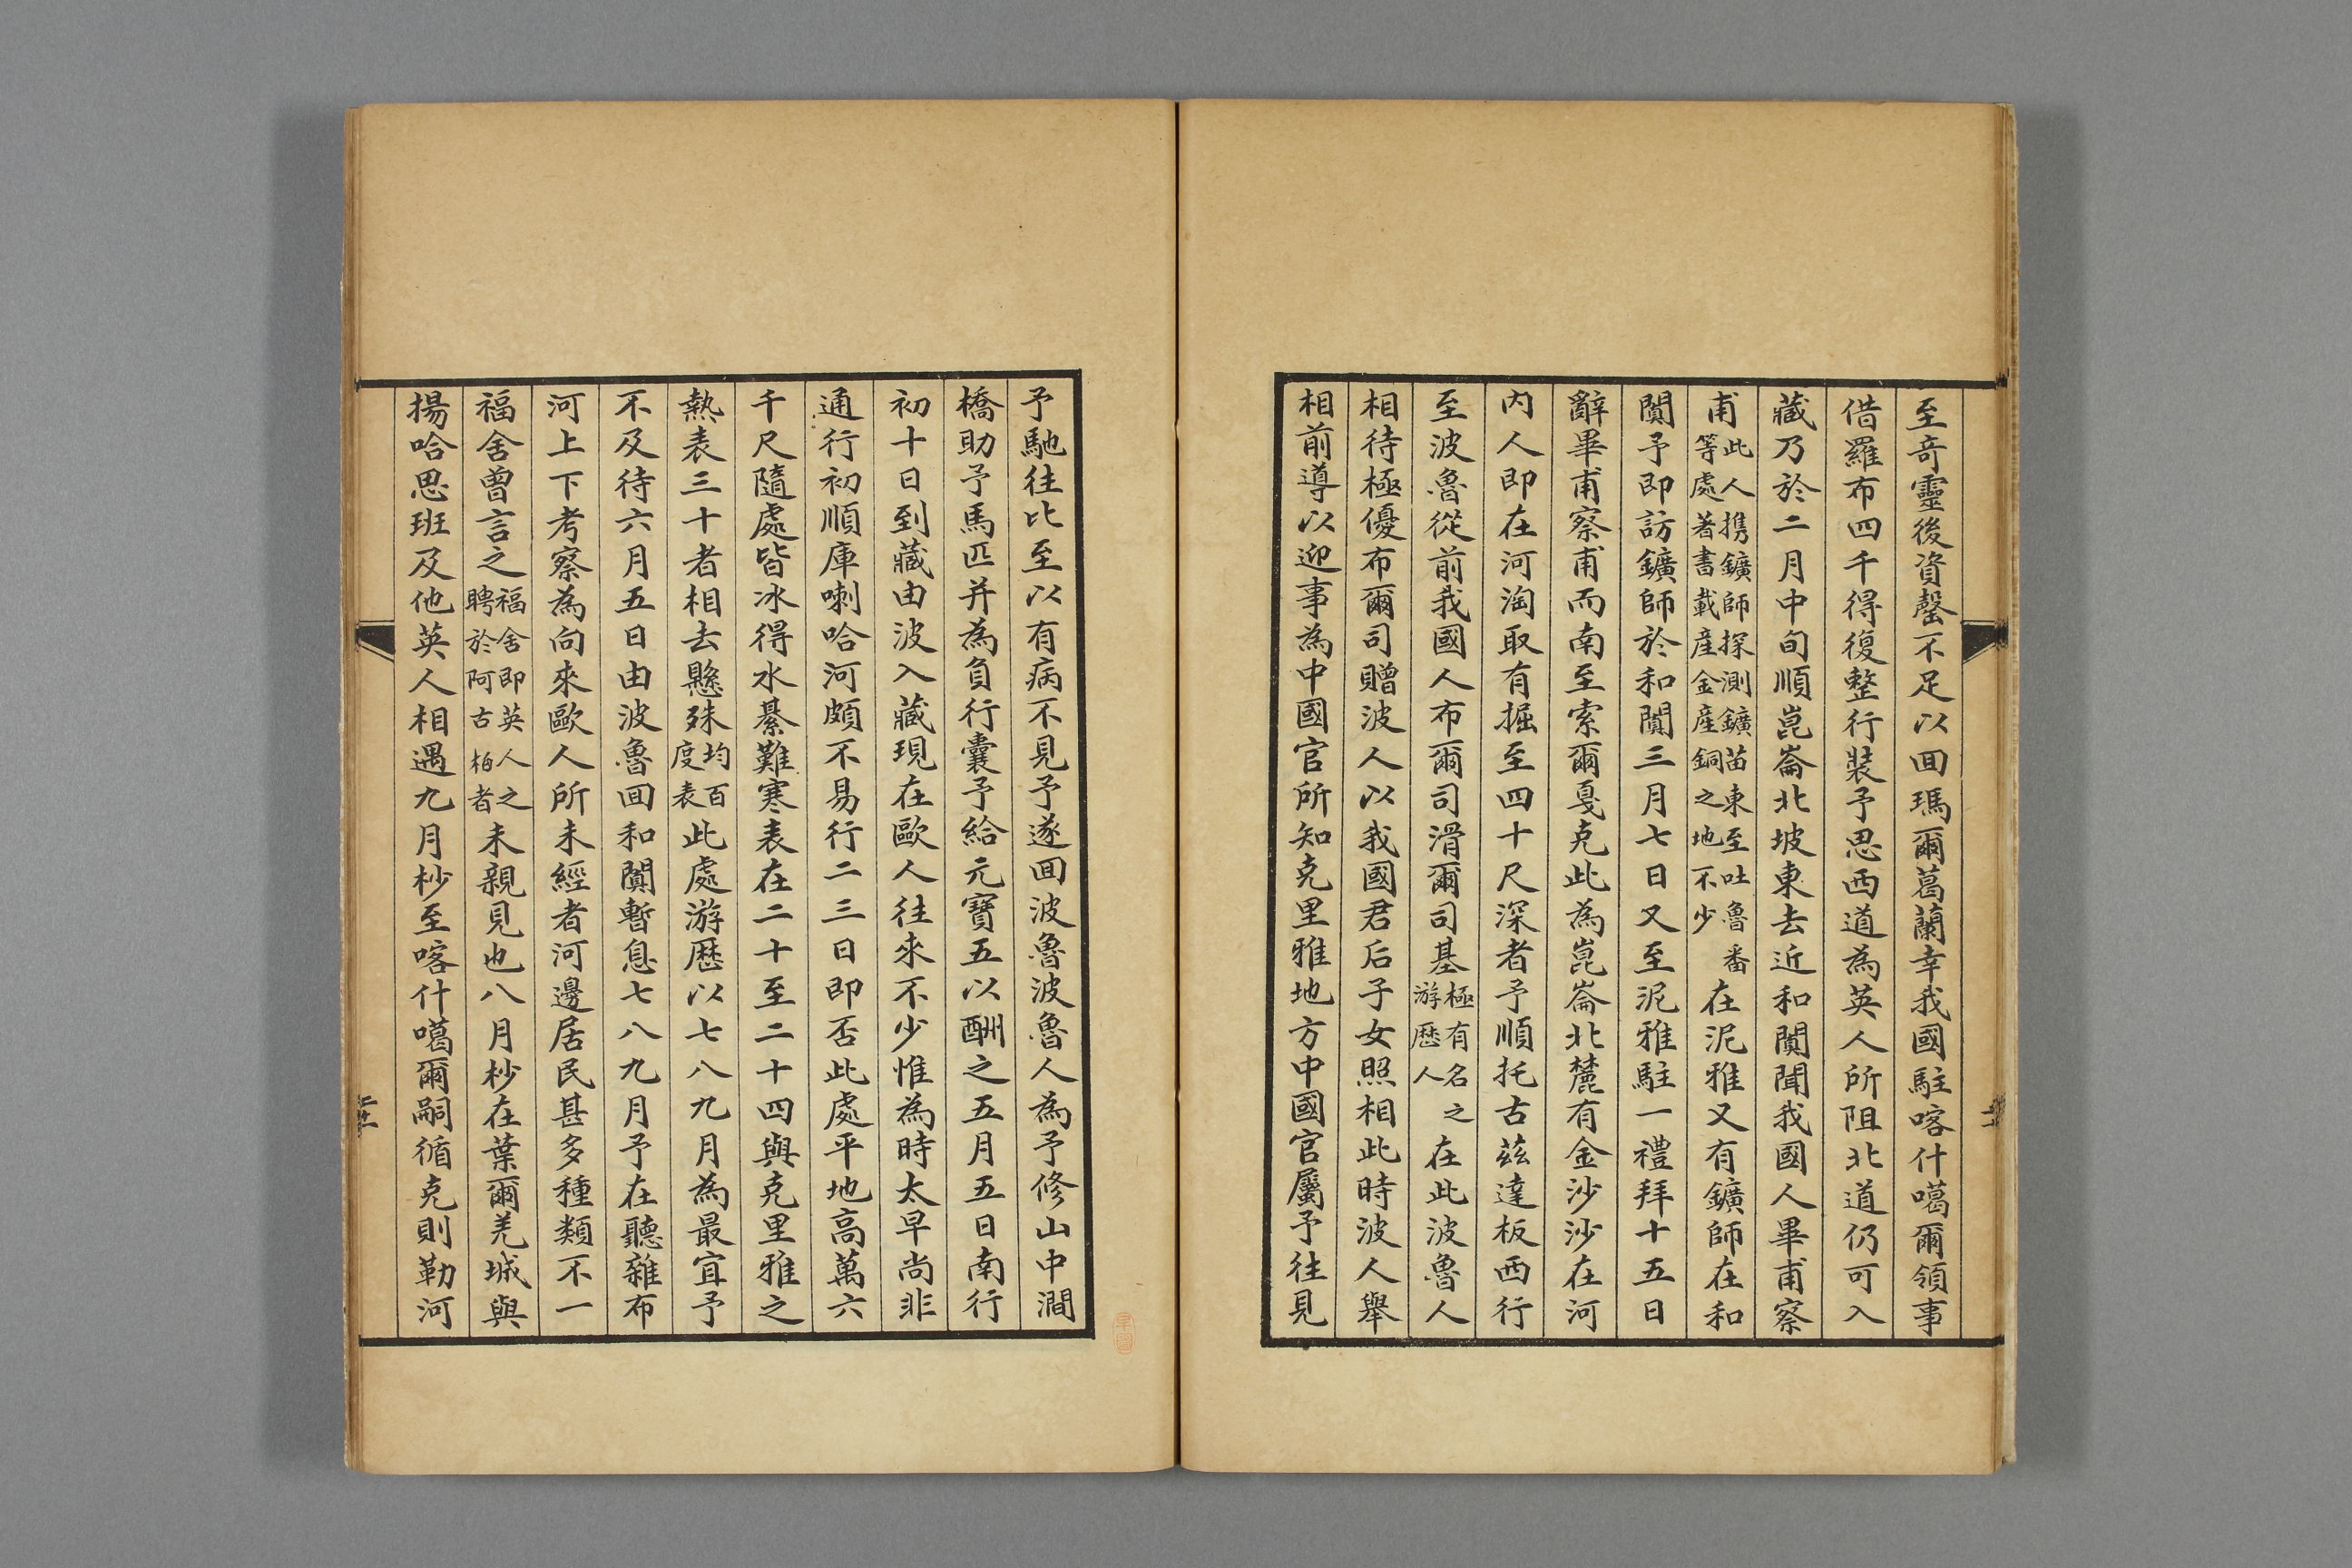 至奇靈後資罄不足以回瑪爾葛蘭幸我國駐喀什噶爾領事
借羅布四千得復整行裝予思西道為英人所阻北道仍可入
藏乃於二月中旬順崑崙北坡東去近和闐聞我國人畢甫察
甫此人携鑛師探測鑛苗東至吐魯番等處著書載産金産銅之地不少在泥雅又有鑛師在和
闐予即訪鑛師於和闐三月七日又至泥雅駐一禮拜十五日
辭畢甫察甫而南至索爾戛克此為崑崙北麓有金沙沙在河
内人即在河淘取有掘至四十尺深者予順托古茲達板西行
至波魯從前我國人布爾司滑爾司基極有名之游歷人在此波魯人
相待極優布爾司贈波人以我國君后子女照相此時波人舉
相前導以迎事為中國官所知克里雅地方中國官屬予往見
予馳往比至以有病不見予遂回波魯波魯人為予修山中澗
橋助予馬匹并為負行囊予給元寶五以酬之五月五日南行
初十日到藏由波入藏現在歐人往來不少惟為時太早尚非
通行初順庫喇哈河頗不易行二三日即否此處平地高萬六
千尺隨處皆冰得水綦難寒表在二十至二十四與克里雅之
熱表三十者相去懸殊均百度表此處游歷以七八九月為最宜予
不及待六月五日由波魯回和闐暫息七八九月予在聽雜布
河上下考察為向來歐人所未經者河邊居民甚多種類不一
福舍曾言之福舍即英人之聘於阿古柏者未親見也八月杪在葉爾羌城與
揚哈思班及他英人相遇九月杪至喀什噶爾嗣循克則勒河